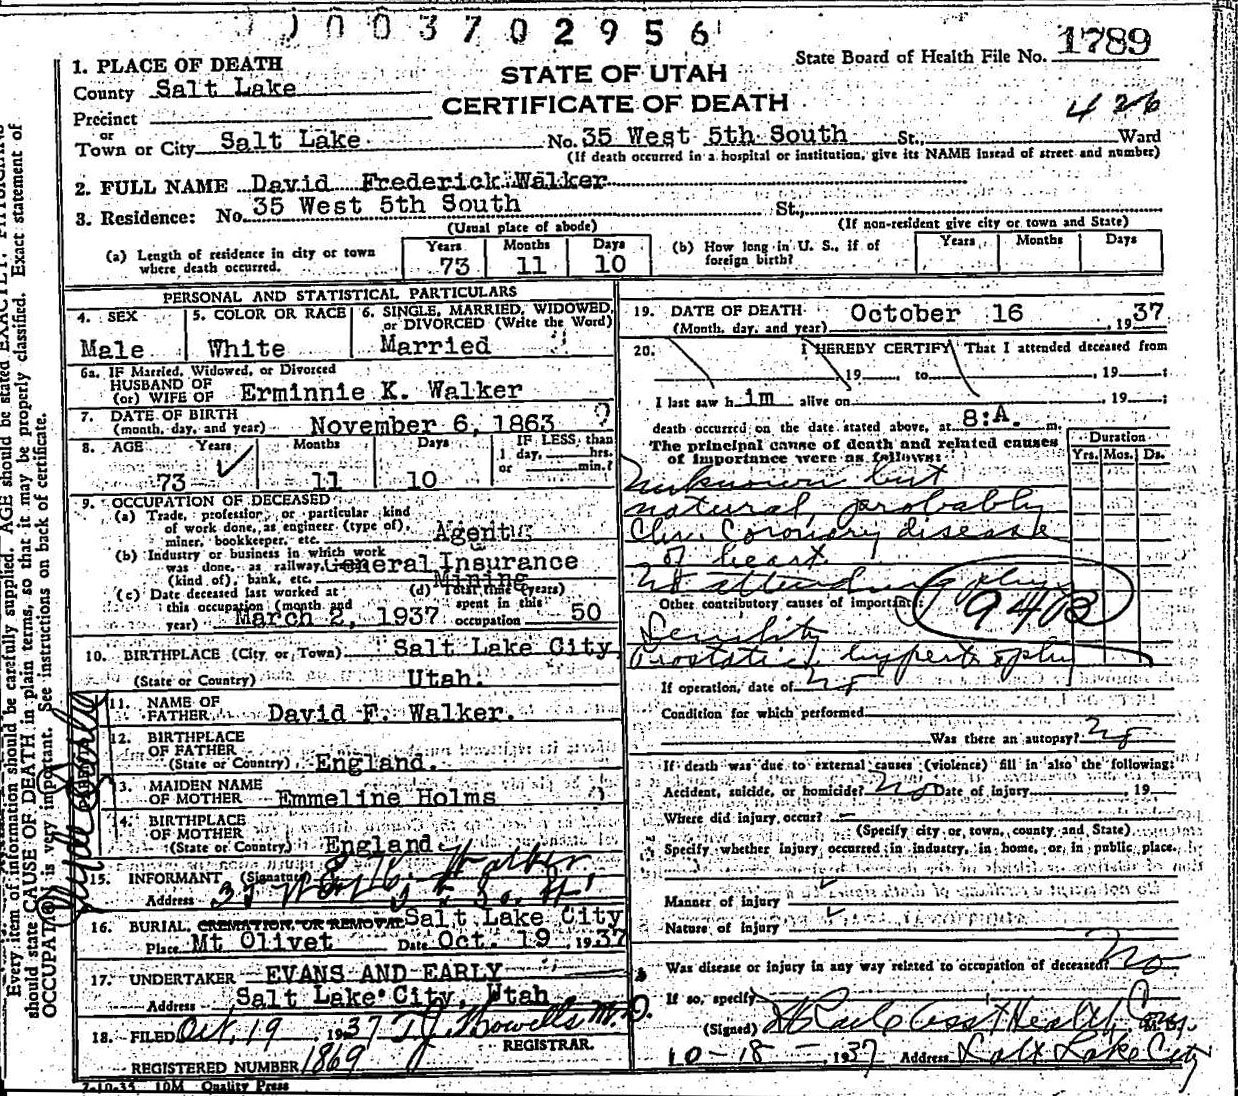 0003702956
State Board of Health File No. 1789
1. PLACE OF DEATH
STATE OF UTAH
County Salt Lake
CERTIFICATE OF DEATH
426
Precinct
or
Town or City Salt Lake No. 35 West 5th South St., Ward
(If death occurred in a hospital or institution, give its NAME instead of street and number)
2. FULL NAME David Frederick Walker
3. Residence: No. 35 West 5th South St.,
(Usual place of abode) (If non-resident give city or town and State)
(a) Length of residence in city or town where death occurred. Years 73 Months 11 Days 10
(b) How long in U. S., if of foreign birth? Years Months Days
PERSONAL AND STATISTICAL PARTICULARS
4. SEX 5. COLOR OR RACE 6. SINGLE, MARRIED, WIDOWED, or DIVORCED (Write the Word)
Male White Married
6a. IF Married, Widowed, or Divorced
HUSBAND OF
(or) WIFE OF Erminnie K. Walker
7. DATE OF BIRTH
(month, day, and year) November 6, 1863
8. AGE Years Months Days IF LESS than
1 day, hrs.
or min.?
73 11 10
9. OCCUPATION OF DECEASED
(a) Trade, profession, or particular kind
of work done, as engineer (type of),
miner, bookkeeper, etc. Agent
(b) Industry or business in which work
was done, as railway, General Insurance
(kind of), bank, etc. Mining
(c) Date deceased last worked at (d) Total time (years)
this occupation (month and spent in this
year) March 2, 1937 occupation 50
10. BIRTHPLACE (City or Town) Salt Lake City
(State or Country) Utah.
11. NAME OF
FATHER David F. Walker.
12. BIRTHPLACE
OF FATHER
(State or Country) England.
13. MAIDEN NAME
OF MOTHER Emmeline Holms
14. BIRTHPLACE
OF MOTHER
(State or Country) England
15. INFORMANT (Signature) Walker
Address 35 West 5th So. St.
16. BURIAL, CREMATION, OR REMOVAL Salt Lake City
Place Mt Olivet Date Oct. 19, 1937
17. UNDERTAKER EVANS AND EARLY
Address Salt Lake City, Utah
18. FILED Oct. 19, 1937 T. J. Howells M. D.
REGISTRAR.
REGISTERED NUMBER 1869
7-10-35 10M Quality Press
19. DATE OF DEATH October 16
(Month, day, and year) , 1937
20. I HEREBY CERTIFY, That I attended deceased from
, 19 , to , 19 ;
I last saw h im alive on , 19 ;
death occurred on the date stated above, at 8:A. m.
The principal cause of death and related causes of importance were as follows:
Duration
Yrs. Mos. Ds.
Unknown but
natural, probably
Chr. Coronary disease
of heart.
No attending phys
Other contributory causes of importance:
94B
Senility
Prostatic hypertrophy
If operation, date of No
Condition for which performed
Was there an autopsy? No
If death was due to external causes (violence) fill in also the following:
Accident, suicide, or homicide? No Date of injury , 19
Where did injury occur?
(Specify city or town, county and State)
Specify whether injury occurred in industry, in home, or in public place.
Manner of injury
Nature of injury
Was disease or injury in any way related to occupation of deceased? No.
If so, specify
(Signed) Asst Health Com M. D.
10-18-, 1937 Address Salt Lake City
Every item of information should be carefully supplied. AGE should be stated EXACTLY. PHYSICIANS
should state CAUSE OF DEATH in plain terms, so that it may be properly classified. Exact statement of
OCCUPATION is very important. See instructions on back of certificate.